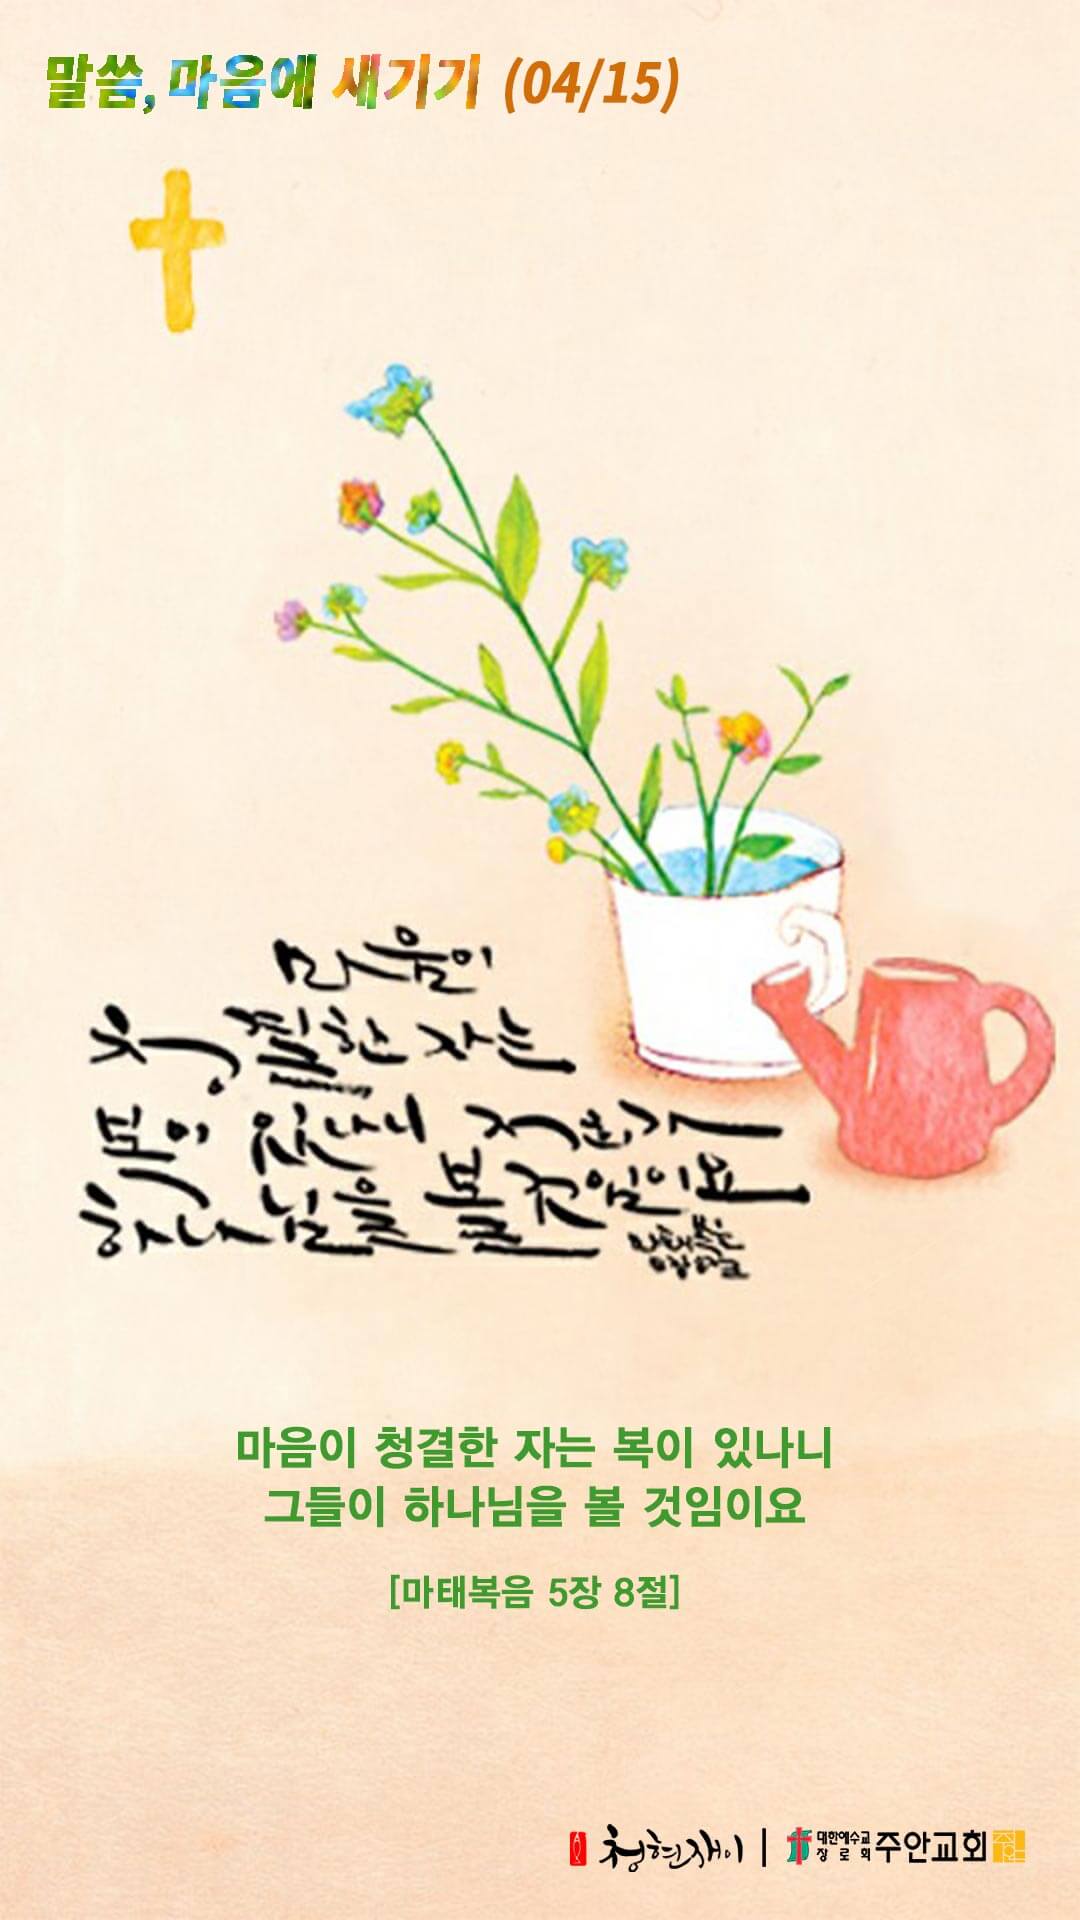 말씀, 마음에 새기기 (04/15)
마음이
청결한 자는
복이 있나니 저희가
하나님을 볼 것임이요
마태복음
5장 8절
마음이 청결한 자는 복이 있나니
그들이 하나님을 볼 것임이요
[마태복음 5장 8절]
청현재이 | 대한예수교 장로회 주안교회